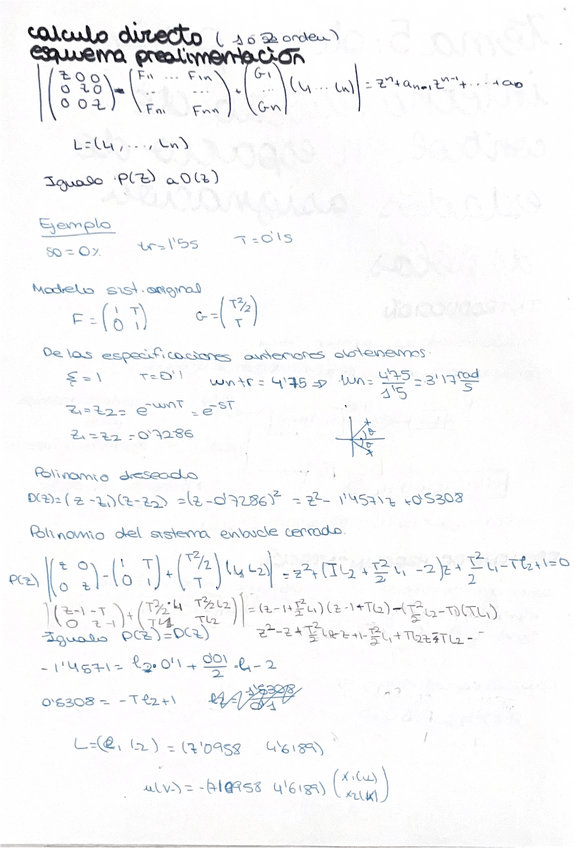 calculo directo (1 o 2 orden)
esquema prealimentación
|(z 0 0; 0 z 0; 0 0 z) - (F11 ... F1n; ... ...; Fn1 Fnn) + (G1; ...; Gn)(L1 ... Ln)| = z^n + a_{n-1} z^{n-1} + ... + a0
L=(L1, ..., Ln)
Igualo P(z) a D(z)
Ejemplo
SO=0% tr=1'5s T=0'1s
Modelo sist. original
F = (1 T; 0 1) G = (T²/2; T)
De las especificaciones anteriores obtenemos.
ξ=1 T=0'1 wntr = 4'75 ⇒ wn = 4'75/1'5 = 3'17 rad/s
z1=z2= e^-wnT = e^-ST
z1=z2=0'7286
Polinomio deseado
D(z)=(z-z1)(z-z2) =(z-0'7286)² = z² - 1'4571z +0'5308
Polinomio del sistema en bucle cerrado.
P(z) |(z 0; 0 z) - (1 T; 0 1) + (T²/2; T)(L1 L2)| = z²+(TL2 + T²/2 L1 -2)z + T²/2 L1 - TL2+1=0
|(z-1 -T; 0 z-1) + (T²/2·L1 T²/2L2; TL1 TL2)| =(z-1+T²/2L1)(z-1+TL2)-(T²/2L2-T)(TL1)
Igualo P(z)=D(z)
-1'4571= L2·0'1 + 0'01/2 ·L1 - 2
0'5308 = -TL2+1
L=(L1 L2) = (7'0958 4'6189)
u(k)= -(7'0958 4'6189) (x1(k); x2(k))